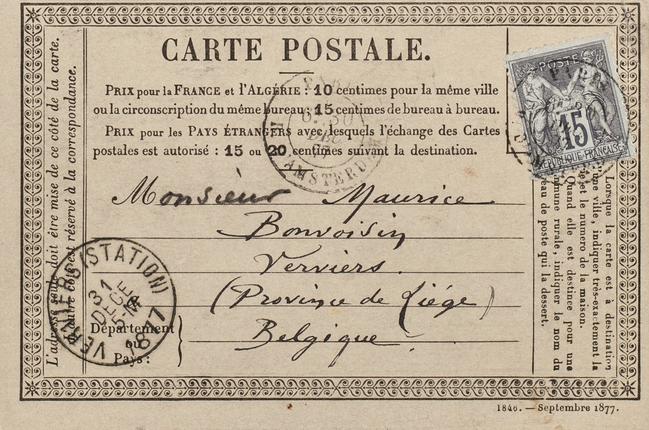 CARTE POSTALE.
PRIX pour la FRANCE et l'ALGÉRIE : 10 centimes pour la même ville
ou la circonscription du même bureau; 15 centimes de bureau à bureau.
PRIX pour les PAYS ÉTRANGERS avec lesquels l'échange des Cartes
postales est autorisé : 15 ou 20 centimes suivant la destination.
Monsieur Maurice
Bonvoisin
Verviers.
(Province de Liége)
Belgique.
Département
ou
Pays:
L'adresse seule doit être mise de ce côté de la carte.
est réservé à la correspondance.
Lorsque la carte est à destination
une ville, indiquer très-exactement la
et le numéro de la maison.
Quand elle est destinée pour une
commune rurale, indiquer le nom du
bureau de poste qui la dessert.
POSTE
15
REPUBLIQUE FRANÇAISE
PARIS
AMSTERDAM
VERVIERS (STATION)
31
DECE
1877
1846. — Septembre 1877.